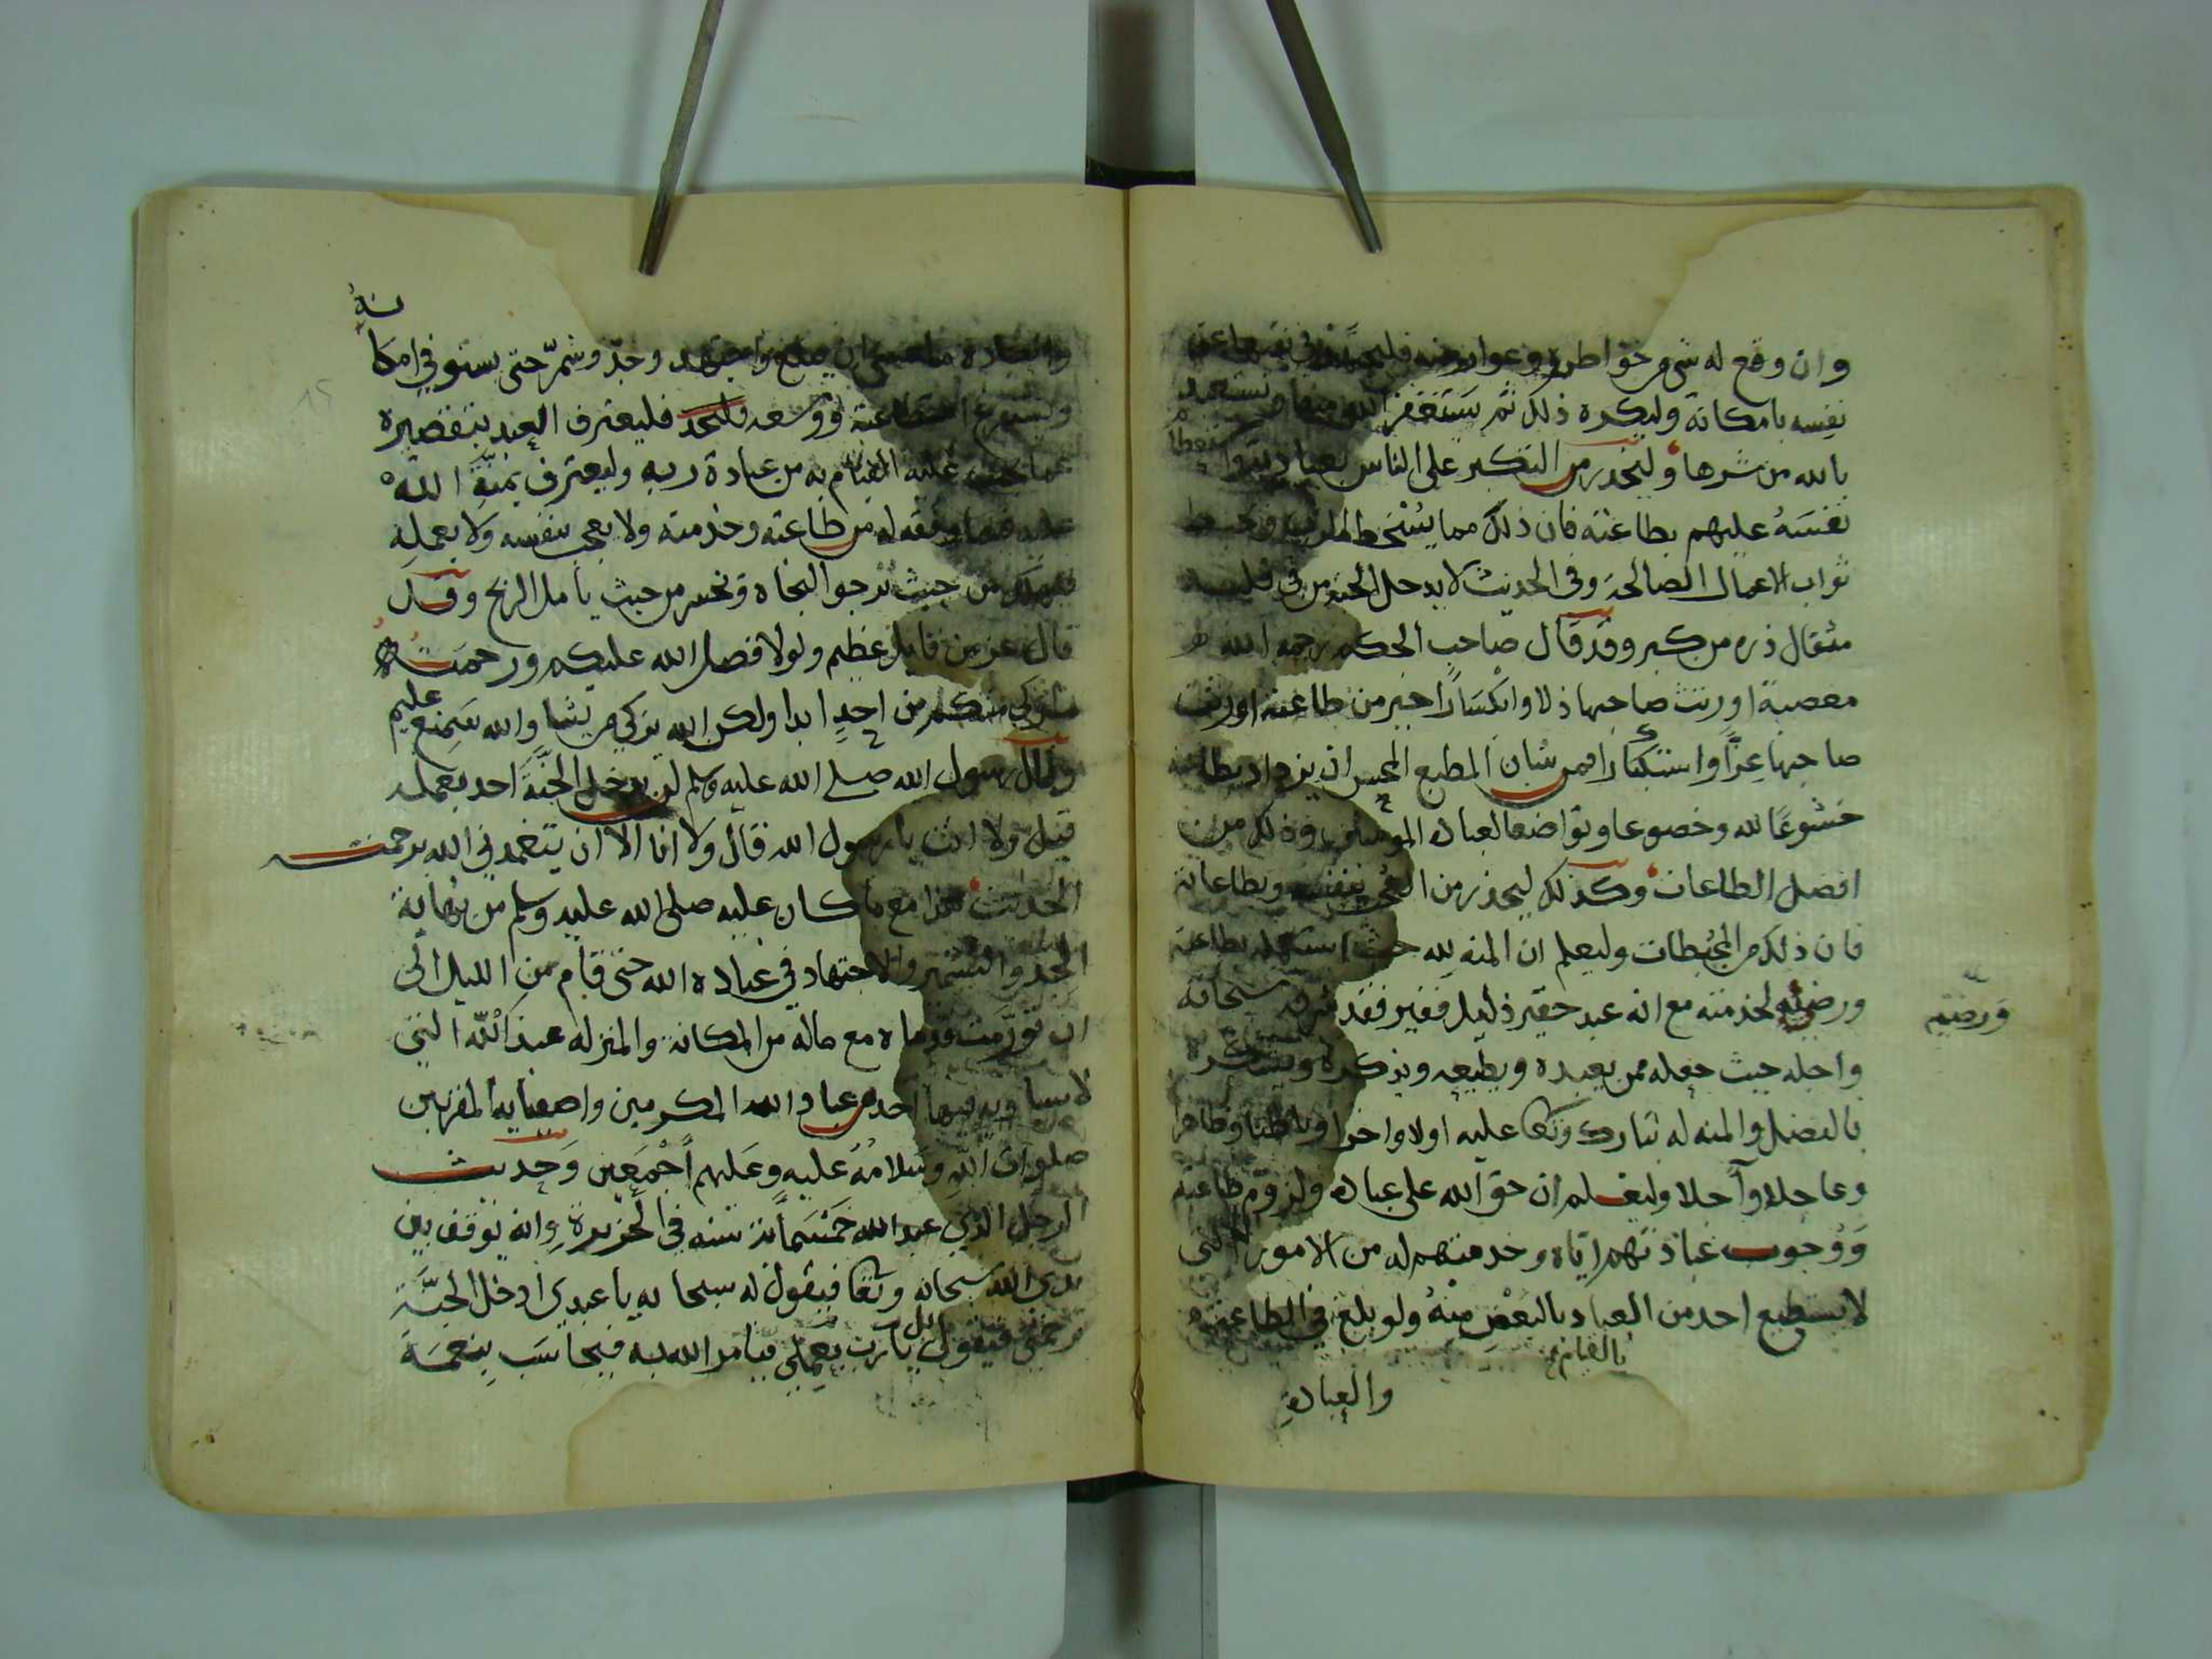 وان وقع له شي من خواطره وعوارضه فليجتهد في نفيها عن
نفسه بامكانه وليكره ذلك ثم يستغفر الله منها ويستعيذ
بالله من شرها وليحذر من التكبر على الناس بعبادته
نفسَهُ عليهم بطاعته فان ذلك مما يُسْخط الرب ويحبط
ثواب الاعمال الصالحة وفي الحديث لا يدخل الجنة من في قلبه
مثقال ذره من كبر وقد قال صاحب الحكم رحمه الله
معصية اورثت صاحبها ذلا وانكسارًا خير من طاعة اورثت
صاحبها عِزًّا واستكبارًا فمن شان المطيع المحسن ان يزداد بطاعته
خشوعًا لله وخضوعا وتواضعا لعباده المومنين وذلك من
افضل الطاعات وكذلك ليحذر من العجب بنفسه وبطاعاته
فان ذلك من المحبطات وليعلم ان المنه لله حيث استعمله بطاعته
ورضيه لخدمته مع انه عبد حقير ذليل فقير فقد شرفه سبحانه
ورضيه
واجله حيث جعله ممن يعبده ويطيعه ويذكره ويشكره
بالفضل والمنه له تبارك وتعا عليه اولا واخرا وباطنا وظاهرا
وعاجلا وآجلا وليعلم ان حق الله على عباده ولزوم طاعته
وَوُجوب عبادتهم اياه وخدمتهم له من الامور التي
لا يستطيع احد من العباد بالبعْضِ منْهُ ولو بلغ في الطاعة
بالقيام
والعبادةِ
والعبادة ما عسى ان يبلغ واجتهد وجدّ وشمرّ حتى يستوفي امكا
نهُ
ويستفرغ استطاعته ووُسعه فليعترف العبد بتقصيره
عما يجب عليه القيام به من عبادة ربه وليعترف بمنَّةِ اللهْ
عليه فيما وفقه له من طاعته وخدمته ولا يعجب بنفسه ولا بعملِه
فيهلك من حيث يرجوا النجاه ويخسر من حيث يامل الربح وقد
قال عز من قايل عظيم ولولا فضل الله عليكم ورحمتهُ
ما زكى منكم من احدٍ ابدا ولكن الله يزكي من يشا والله سَمِيْع عليم
وقال رسول الله صلى الله عليه وسلم لن يدخل الجنَّةَ احد بعمله
قيل ولا انت يا رسول الله قال ولا انا الا ان يتغمدني الله برحمته
الحديث هذا مع ما كان عليه صلى الله عليه وسلم من نهاية
الجد والتشمير والاجتهاد في عباده الله حتى قام من الليل الى
ان تورّمت قدماه مع ماله من المكانة والمنزله عند اللّه التي
لا يساويه فيها احد من عباد الله المكرمين واصفيايه المقربين
صلوات اللهِ وسَلامُهُ عليه وعَليهم أجْمَعين وَحديث
الرجل الذي عبد الله خمْسَمأئة سنه في الجزيرة وانه يوقف بين
يدي الله سبحانه وتعا فيقول له سبحانه يا عبدي ادخل الجنَّة
برحمتي فيقول بل يا رب بعملي فيامر الله به فيحاسَب بِنعمَة